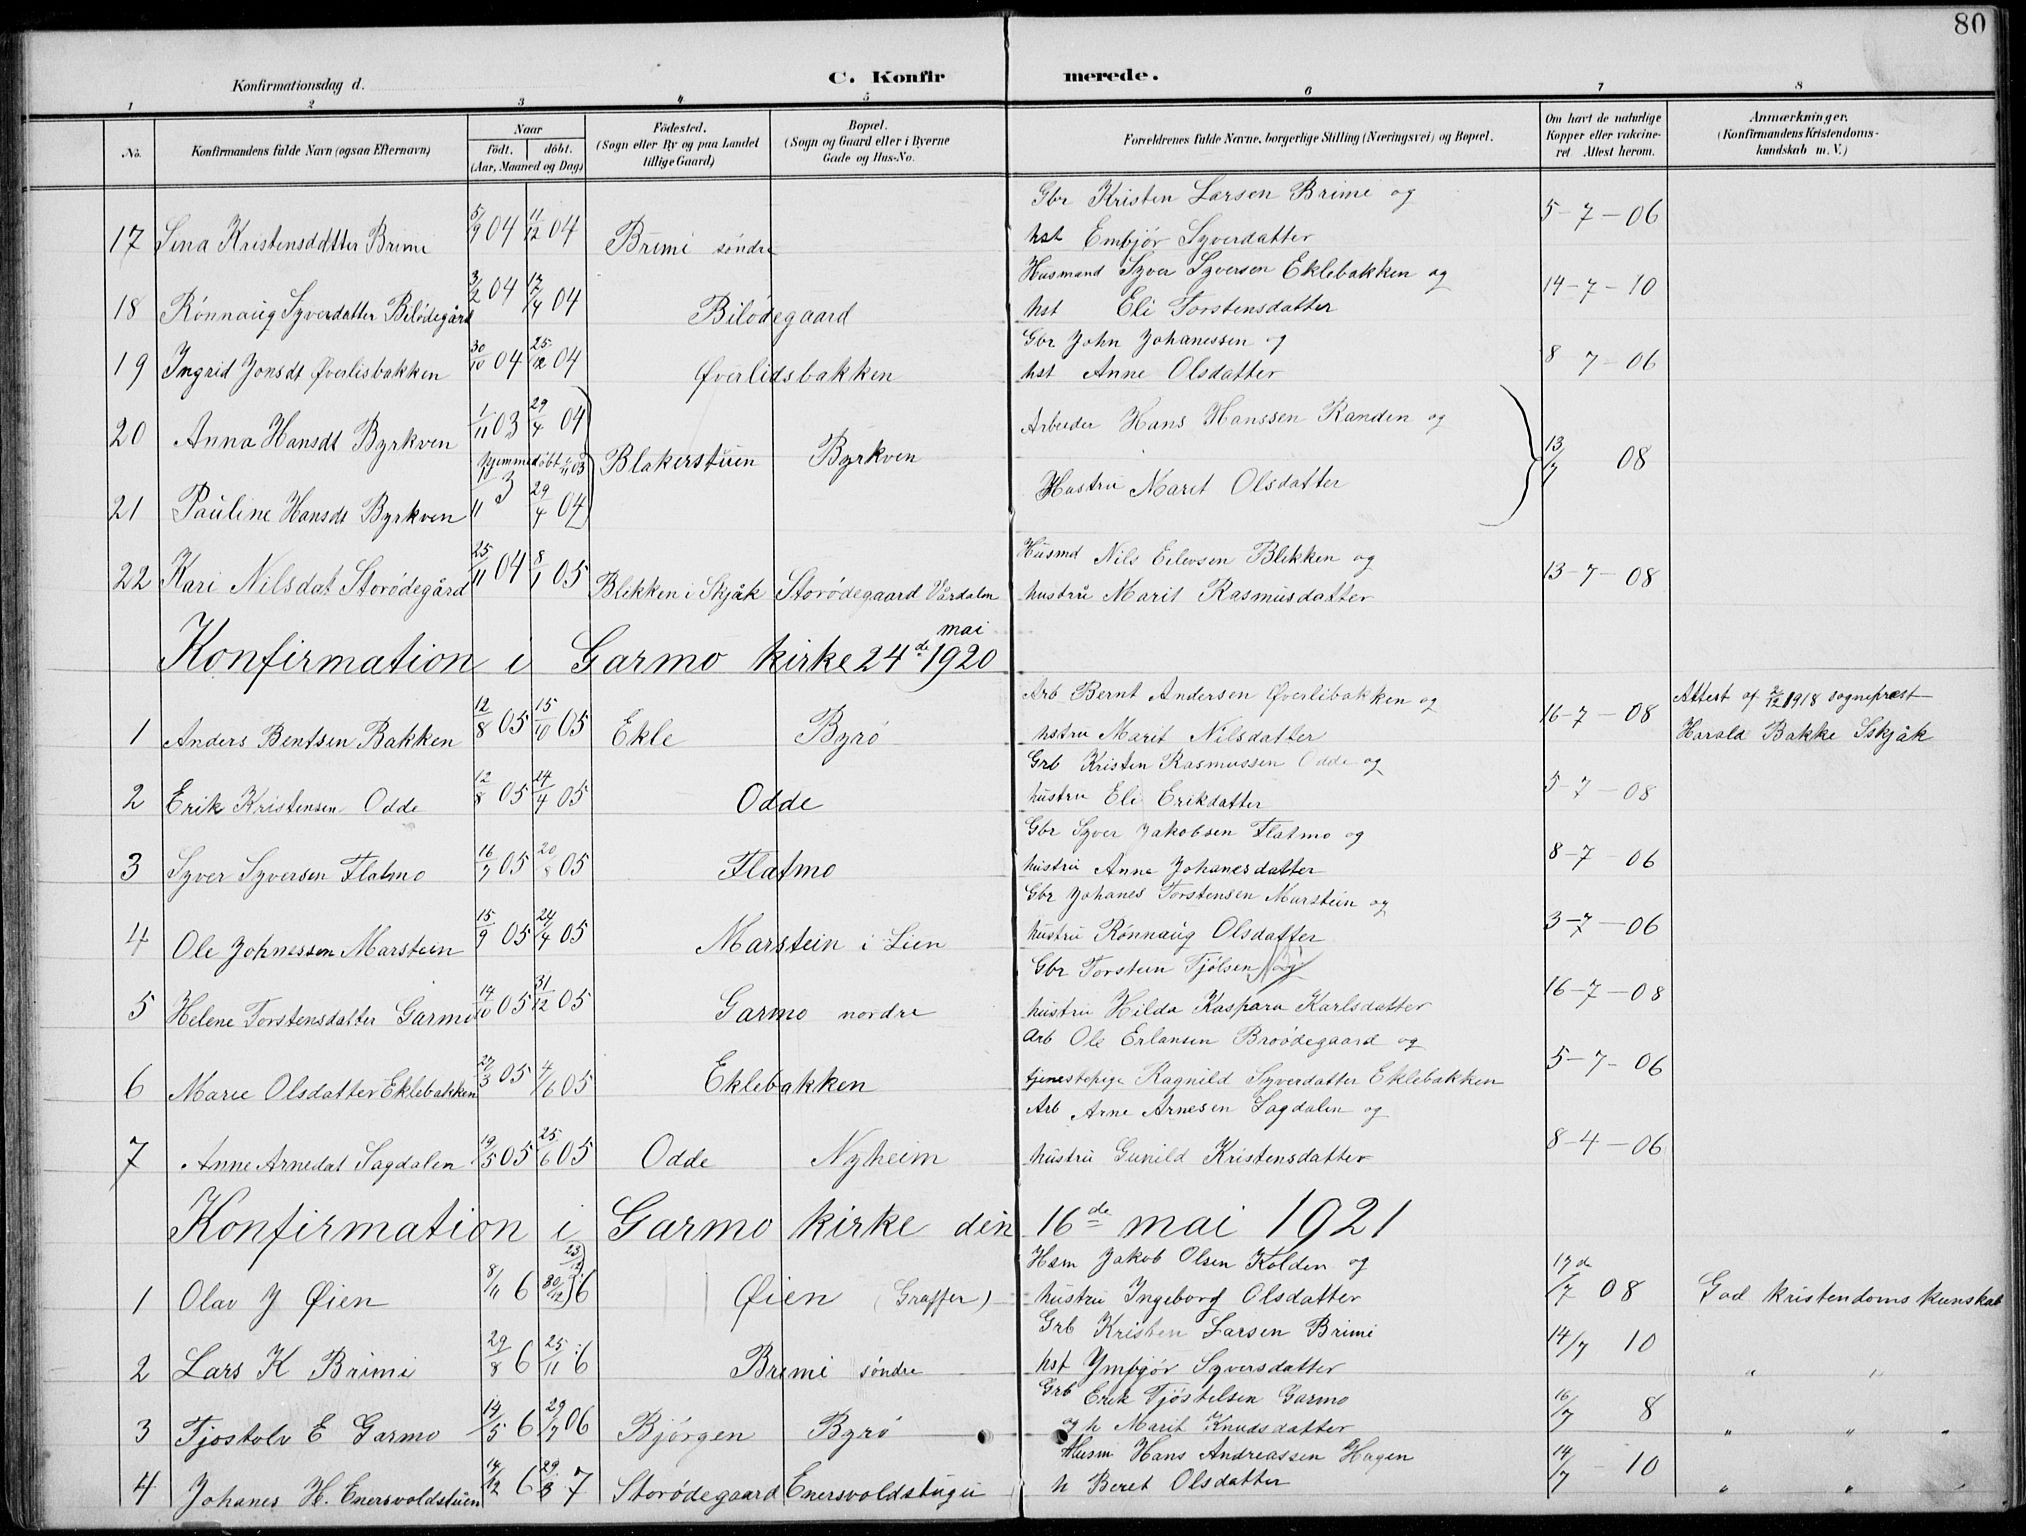 80
Konfirmationsdag d.
C. Konfirmerede.
1 2 3 4 5 6 7 8
No. Konfirmandens fulde Navn (ogsaa Efternavn) Naar født. døbt. (Aar, Maaned og Dag) Fødested. (Sogn eller By og paa Landet tillige Gaard) Bopæl. (Sogn og Gaard eller i Byerne Gade og Hus-No. Forældrenes fulde Navne, borgerlige Stilling (Næringsvei) og Bopæl. Om havt de naturlige Kopper eller vaccineret Attest herom. Anmærkninger. (Konfirmandens Kristendomskundskab m. V.)
Gbr Kristen Larsen Brime og
17 Sina Kristensdatter Brimi 5/9 04 11/12 04 Brimi søndre hst Embjør Syverdatter 5-7-06
Husmand Syver Syversen Eklebakken og
18 Rønnaug Syverdatter Bilødegård 3/2 04 17/4 04 Bilødegaard hst Eli Torstensdatter 14-7-10
Gbr John Johanessen og
19 Ingrid Jonsdt Øverlisbakken 30/10 04 25/12 04 Øverlidsbakken hst Anne Olsdatter 8 7-06
Arbeider Hans Hanssen Randen og
20 Anna Hansdt Byrkven 1/11 03 29/4 04
hjemmedøbt 03 Blakerstuen Byrkven 13/7 08
Hustru Marit Olsdatter
21 Pauline Hansdt Byrkven 11 3 29/4 04
Husmd Nils Eilevsen Blekken og
22 Kari Nilsdat Storødegård 25/11 04 8/1 05 Blekken i Skjåk Storødegaard Vårdalen hustru Marit Rasmusdatter 13-7-08
Konfirmation i Garmo kirke 24de mai 1920
Arb Bernt Andersen Øverlibakken og
1 Anders Bentsen Bakken 12/8 05 15/10 05 Ekle Byrø hstru Marit Nilsdatter 16-7-08 Attest af 2/12 1918 sogneprest Harald Bakke Skjåk
Grb Kristen Rasmussen Odde og
2 Erik Kristensen Odde 12/8 05 24/4 05 Odde hustru Eli Erikdatter 5-7-08
Gbr Syver Jakobsen Flatmo og
3 Syver Syversen Flatmo 16/7 05 20/8 05 Flatmo hustru Anne Johanesdatter 8-7-06
Gbr Johanes Torstensen Marstein og
4 Ole Johnessen Marstein 15/9 05 24/4 05 Marstein i Lien hustru Rønnaug Olsdatter 3-7-06
Gbr Torstein Tjølsen og
5 Helene Torstensdatter Garmo 14/10 05 31/12 05 Garmo nordre hustru Hilda Kaspara Karlsdatter 16-7-08
Arb Ole Erlansen Broødegaard og
6 Marie Olsdatter Eklebakken 27/3 05 4/6 05 Eklebakken tjenestepige Ragnild Syverdatter Eklebakken 5-7-06
Arb Arne Arnesen Sagdalen og
7 Anne Arnedat Sagdalen 19/5 05 25/6 05 Odde Nyheim hustru Gunild Kristensdatter 8-4-06
Konfirmation i Garmo kirke den 16de mai 1921
Hsm Jakob Olsen Kolden og
1 Olav J Øien 8/11 6 30/12 6 Øien (Graffer) hustru Ingeborg Olsdatter 17de/7 08 God kristendomskunskab
Grb Kristen Larsen Brimi
2 Lars K Brimi 29/8 6 25/11 6 Brimi søndre hst Ymbjør Syversdatter 14/7 10 " "
Grb Erik Tjøstelsen Garmo
3 Tjostolv E Garmo 14/5 6 29/7 06 Bjørgen Byrø og h Marit Knudsdatter 16/7 8 " " "
Husm Hans Andreassen Hagen
4 Johanes H. Enersvoldstuen 14/12 6 29/3 7 Storødegaard Enersvoldstugu h Beret Olsdatter 14/7 10 " " "